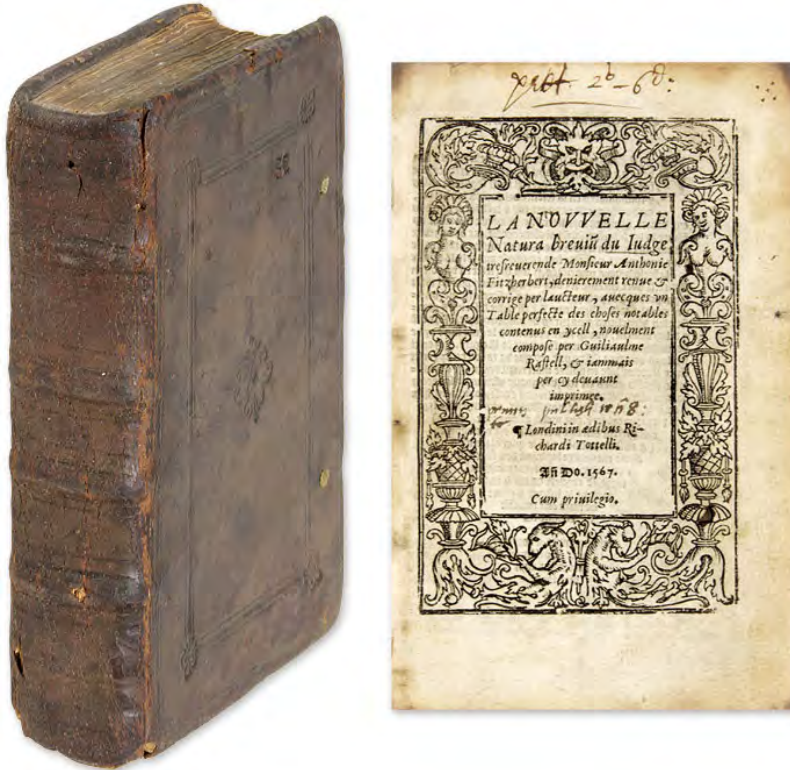 2ˢ — 6ᵈ:
LA NOVVELLE
Natura breuiũ du Iudge
tresreuerende Monsieur Anthonie
Fitzherbert, denierement renue &
corrige per laucteur, auecques vn
Table perfecte des choses notables
contenus en ycell, nouelment
compose per Guiliaulme
Rastell, & iammais
per cy deuaunt
imprimee.
¶ Londini in ædibus Ri-
chardi Tottelli.
Añ Do. 1567.
Cum priuilegio.